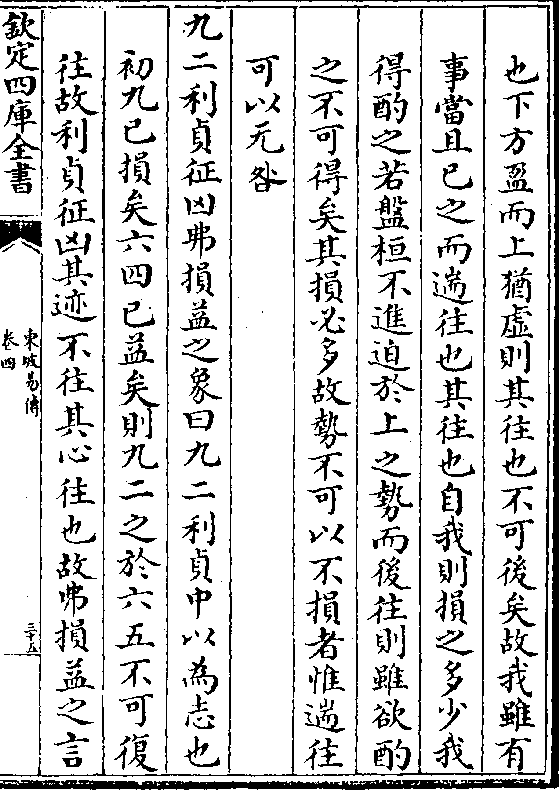 也下方盈而上猶虛則其往也不可後矣故我雖有
事當且已之而遄往也其往也自我則損之多少我
得酌之若盤桓不進迫於上之勢而後往則雖欲酌
之不可得矣其損必多故勢不可以不損者惟遄往
可以无咎
九二利貞征凶弗損益之象曰九二利貞中以為志也
初九已損矣六四已益矣則九二之於六五不可復
往故利貞征凶其迹不往其心往也故弗損益之言
欽定四庫全書
東坡易傳
卷四
三十五